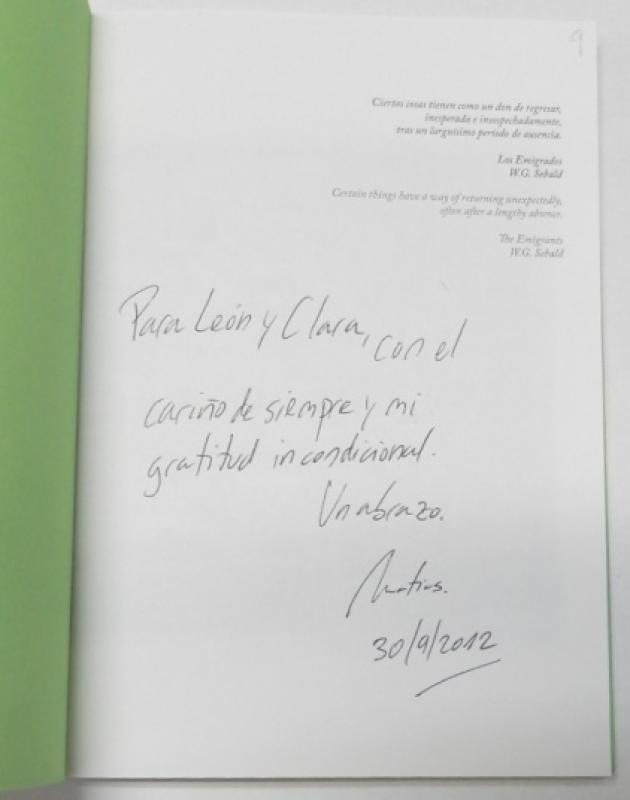 9
Ciertas cosas tienen como un don de regresar,
inesperada e insospechadamente,
tras un larguísimo período de ausencia.
Los Emigrados
W.G. Sebald
Certain things have a way of returning unexpectedly,
often after a lengthy absence.
The Emigrants
W.G. Sebald
Para León y Clara, con el
cariño de siempre y mi
gratitud incondicional.
Un abrazo.
Matías.
30/9/2012